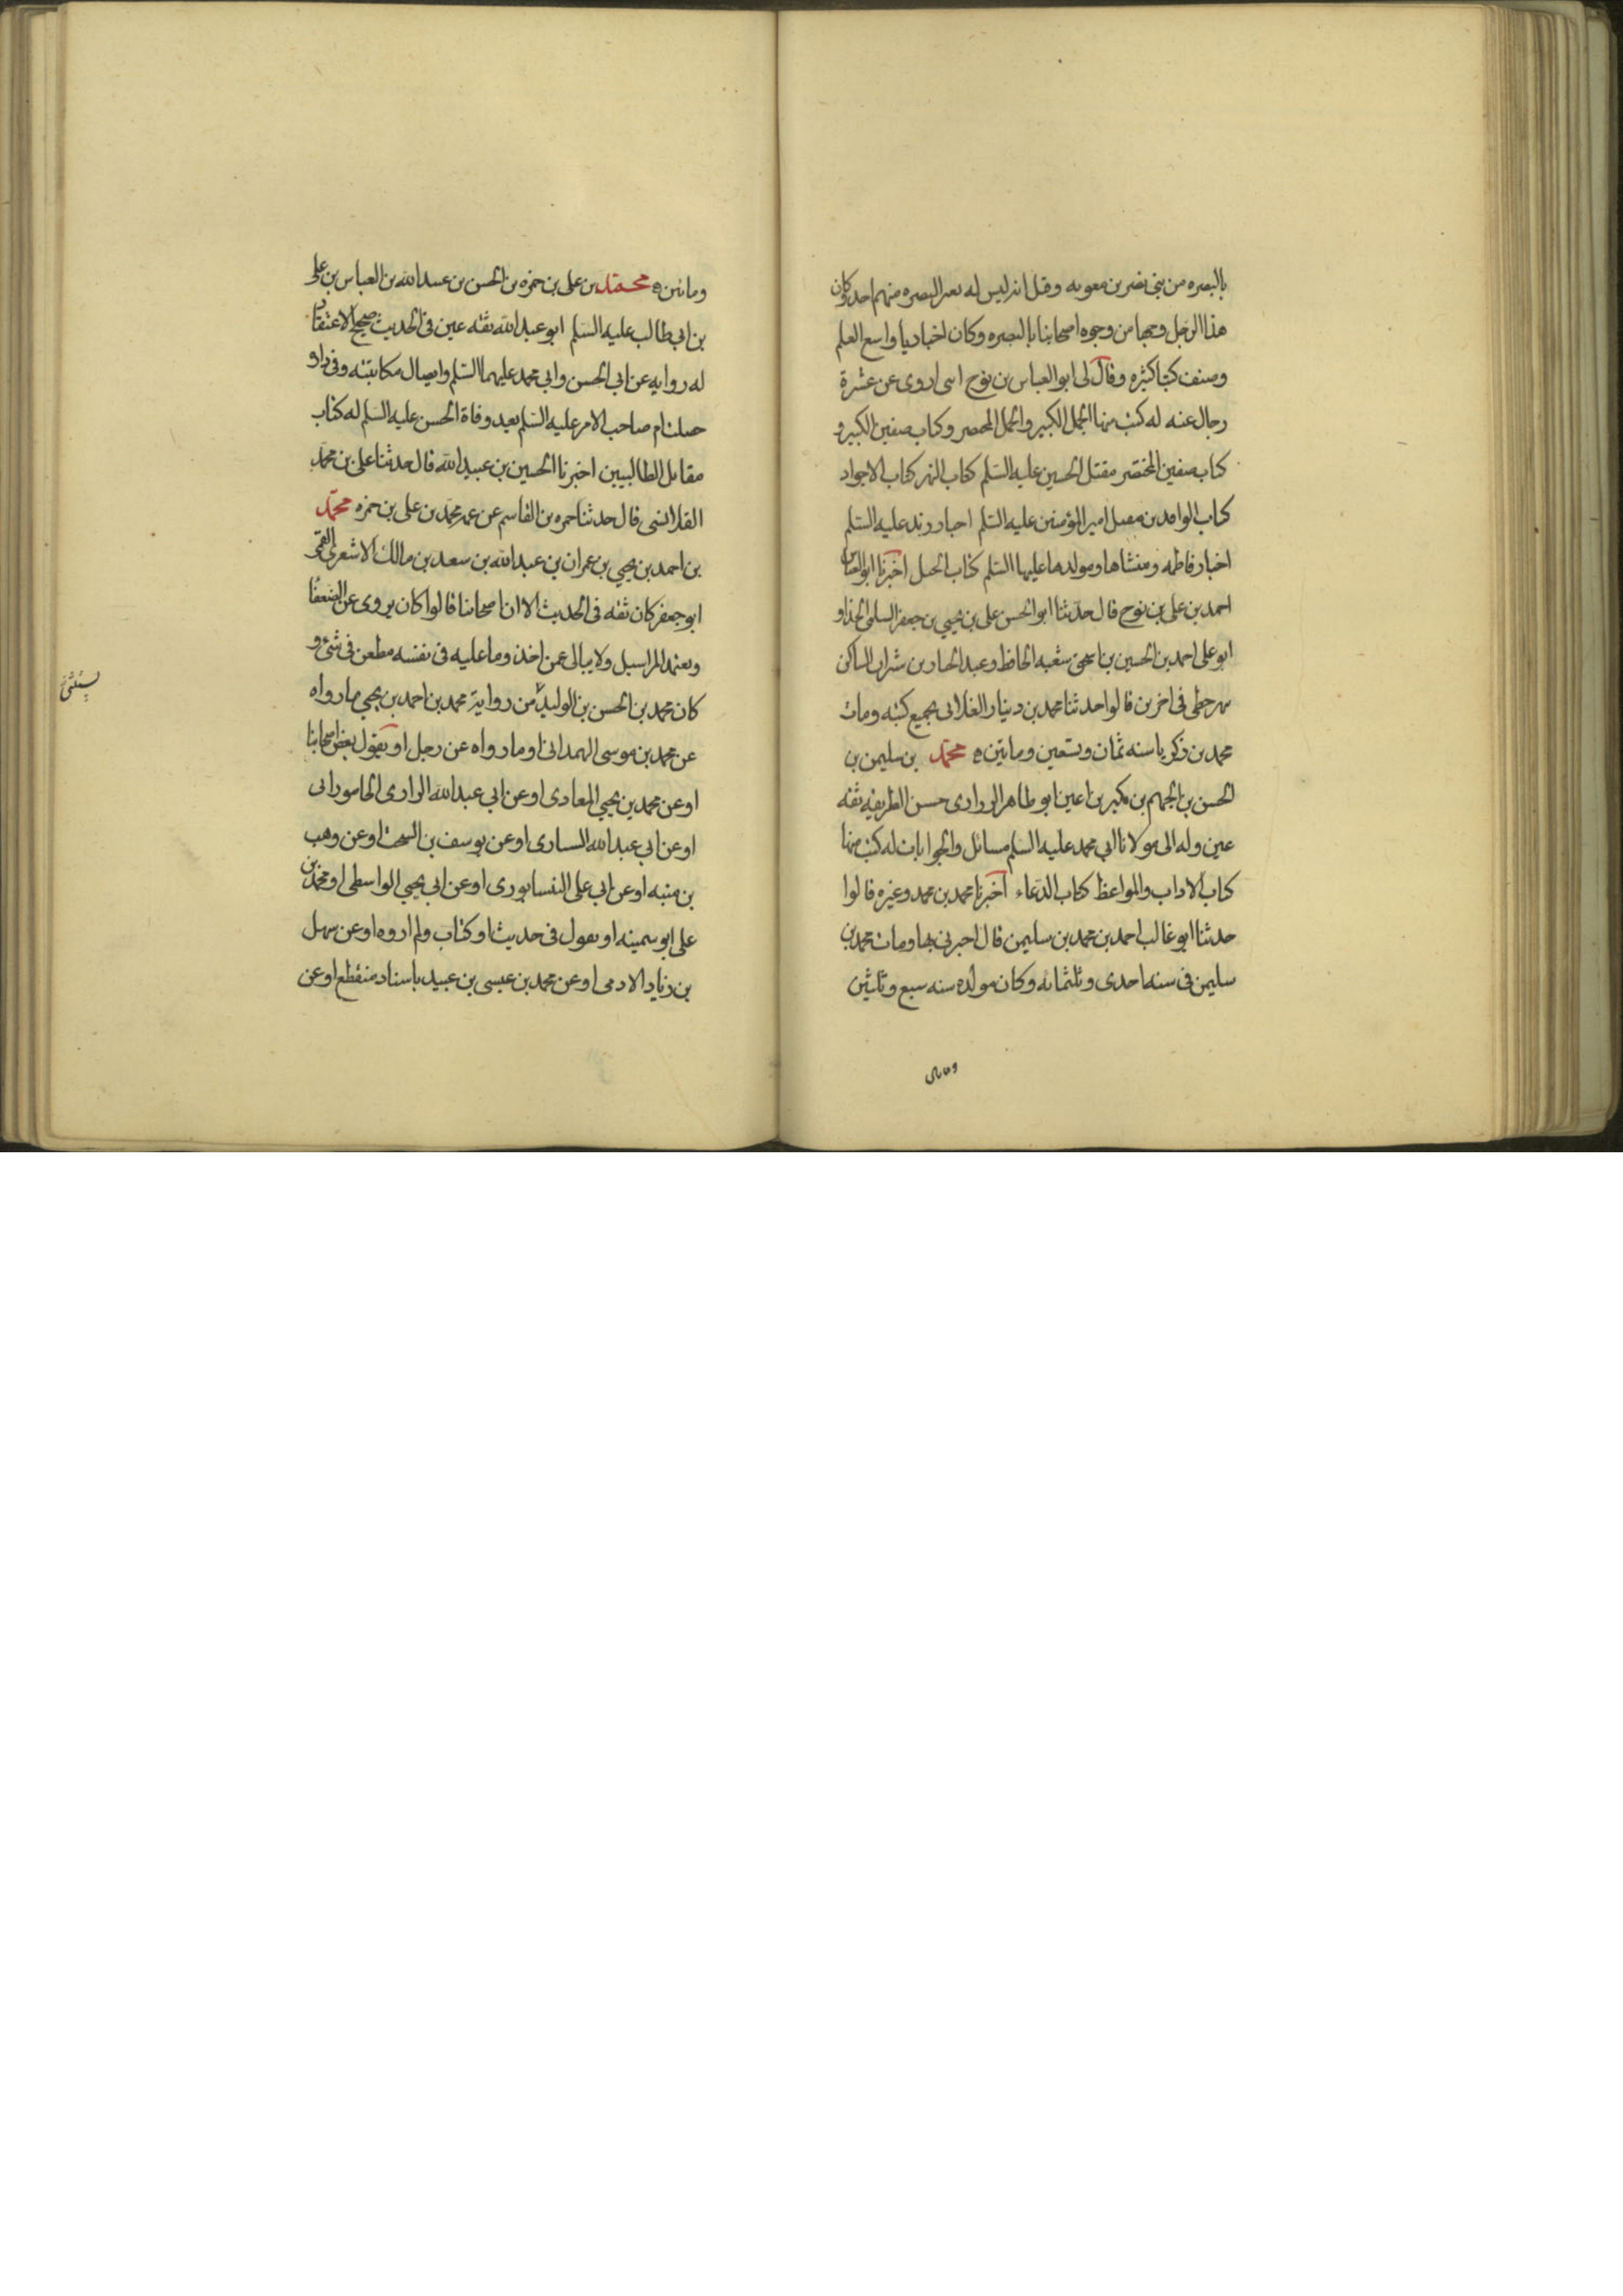 بالبصره من بني نصر بن معويه وقيل انه ليس له بغير البصره منهم احد وكان
هذا الرجل وجها من وجوه اصحابنا بالبصره وكان اخباريا واسع العلم
وصنف كتبا كثيره وقال لى ابو العباس بن نوح اننى اروى عن عشرة
رجال عنه له كتب منها الجمل الكبير والجمل المختصر وكتاب صفين الكبير و
كتاب صفين المختصر مقتل الحسين عليه السلم كتاب النهر كتاب الاجواد
كتاب الوافدين مقتل امير المؤمنين عليه السلم اخبار زيد عليه السلم
اخبار فاطمه ومنشاها ومولدها عليها السلم كتاب الحيل اخبرنا ابو العباس
احمد بن على بن نوح قال حدثنا ابو الحسن على بن يحيي بن جعفر السلمى الحذا و
ابو على احمد بن الحسين بن اسحق بن شعبه الحافظ وعبد الجبار بن شيران الساكن
نهر خطى فى اخرين قالوا حدثنا محمد بن دينار الغلابى بجميع كتبه ومات
محمد بن زكريا سنه ثمان وتسعين وماتين ه محمد بن سليمن بن
الحسن بن الجهم بن بكير بن اعين ابو طاهر الزرارى حسن الطريقه ثقه
عين وله الى مولانا ابي محمد عليه السلم مسائل والجوابات له كتب منها
كتاب الاداب والمواعظ كتاب الدعاء اخبرنا محمد بن محمد وغيره قالوا
حدثنا ابو غالب احمد بن محمد بن سليمن قال اخبرنى بها ومات محمد بن
سليمن فى سنه احدى وثلثمائه وكان مولده سنه سبع وثلثين
وماتين
وماتين ه محمد بن على بن حمزه بن الحسن بن عبيد الله بن العباس بن على
بن ابي طالب عليه السلم ابو عبد الله ثقه عين فى الحديث صحيح الاعتقاد
له روايه عن ابي الحسن وابي محمد عليهما السلم وايصال مكاتبته وفى داره
حصلت ام صاحب الامر عليه السلم بعد وفاة الحسن عليه السلم له كتاب
مقاتل الطالبيين اخبرنا الحسين بن عبيد الله قال حدثنا على بن محمد
القلانسى قال حدثنا حمزه بن القاسم عن عمه محمد بن على بن حمزه محمد
بن احمد بن يحيي بن عمران بن عبد الله بن سعد بن مالك الاشعرى القمى
ابو جعفر كان ثقه فى الحديث الا ان اصحابنا قالوا كان يروى عن الضعفا
ويعتمد المراسيل ولا يبالى عمن اخذ وما عليه فى نفسه مطعن فى شئ و
كان محمد بن الحسن بن الوليد من رواية محمد بن احمد بن يحيي ما رواه
يستثنى
عن محمد بن موسى الهمدانى او ما رواه عن رجل او يقول بعض اصحابنا
او عن محمد بن يحيي المعاذى او عن ابي عبد الله الرازى الجامورانى
او عن ابي عبد الله السيارى او عن يوسف بن السخت او عن وهب
بن منبه او عن ابي على النيسابورى او عن ابي يحيي الواسطى او محمد بن
على ابو سمينه او يقول فى حديث او كتاب ولم اروه او عن سهل
بن زياد الادمى او عن محمد بن عيسى بن عبيد باسناد منقطع او عن